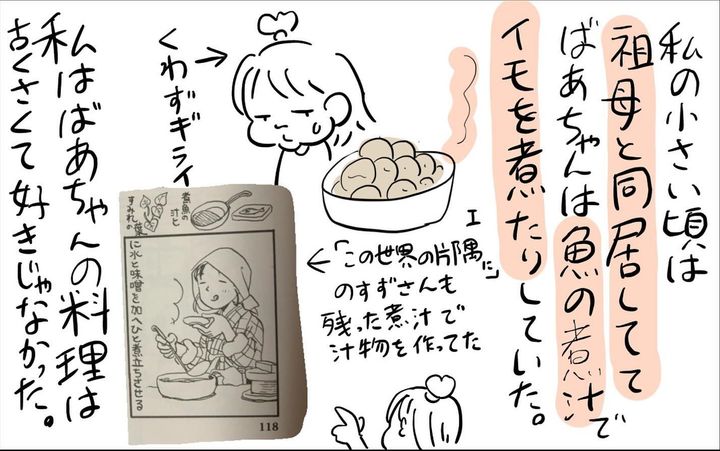 私の小さい頃は
祖母と同居してて
ばあちゃんは魚の煮汁で
イモを煮たりしていた。
くわずギライ
「この世界の片隅に」
のすずさんも
残った煮汁で
汁物を作ってた
煮魚の
汁と
すみれの
葉
に水と味噌を加へひと煮立ちさせる
118
私はばあちゃんの料理は
古くさくて好きじゃなかった。